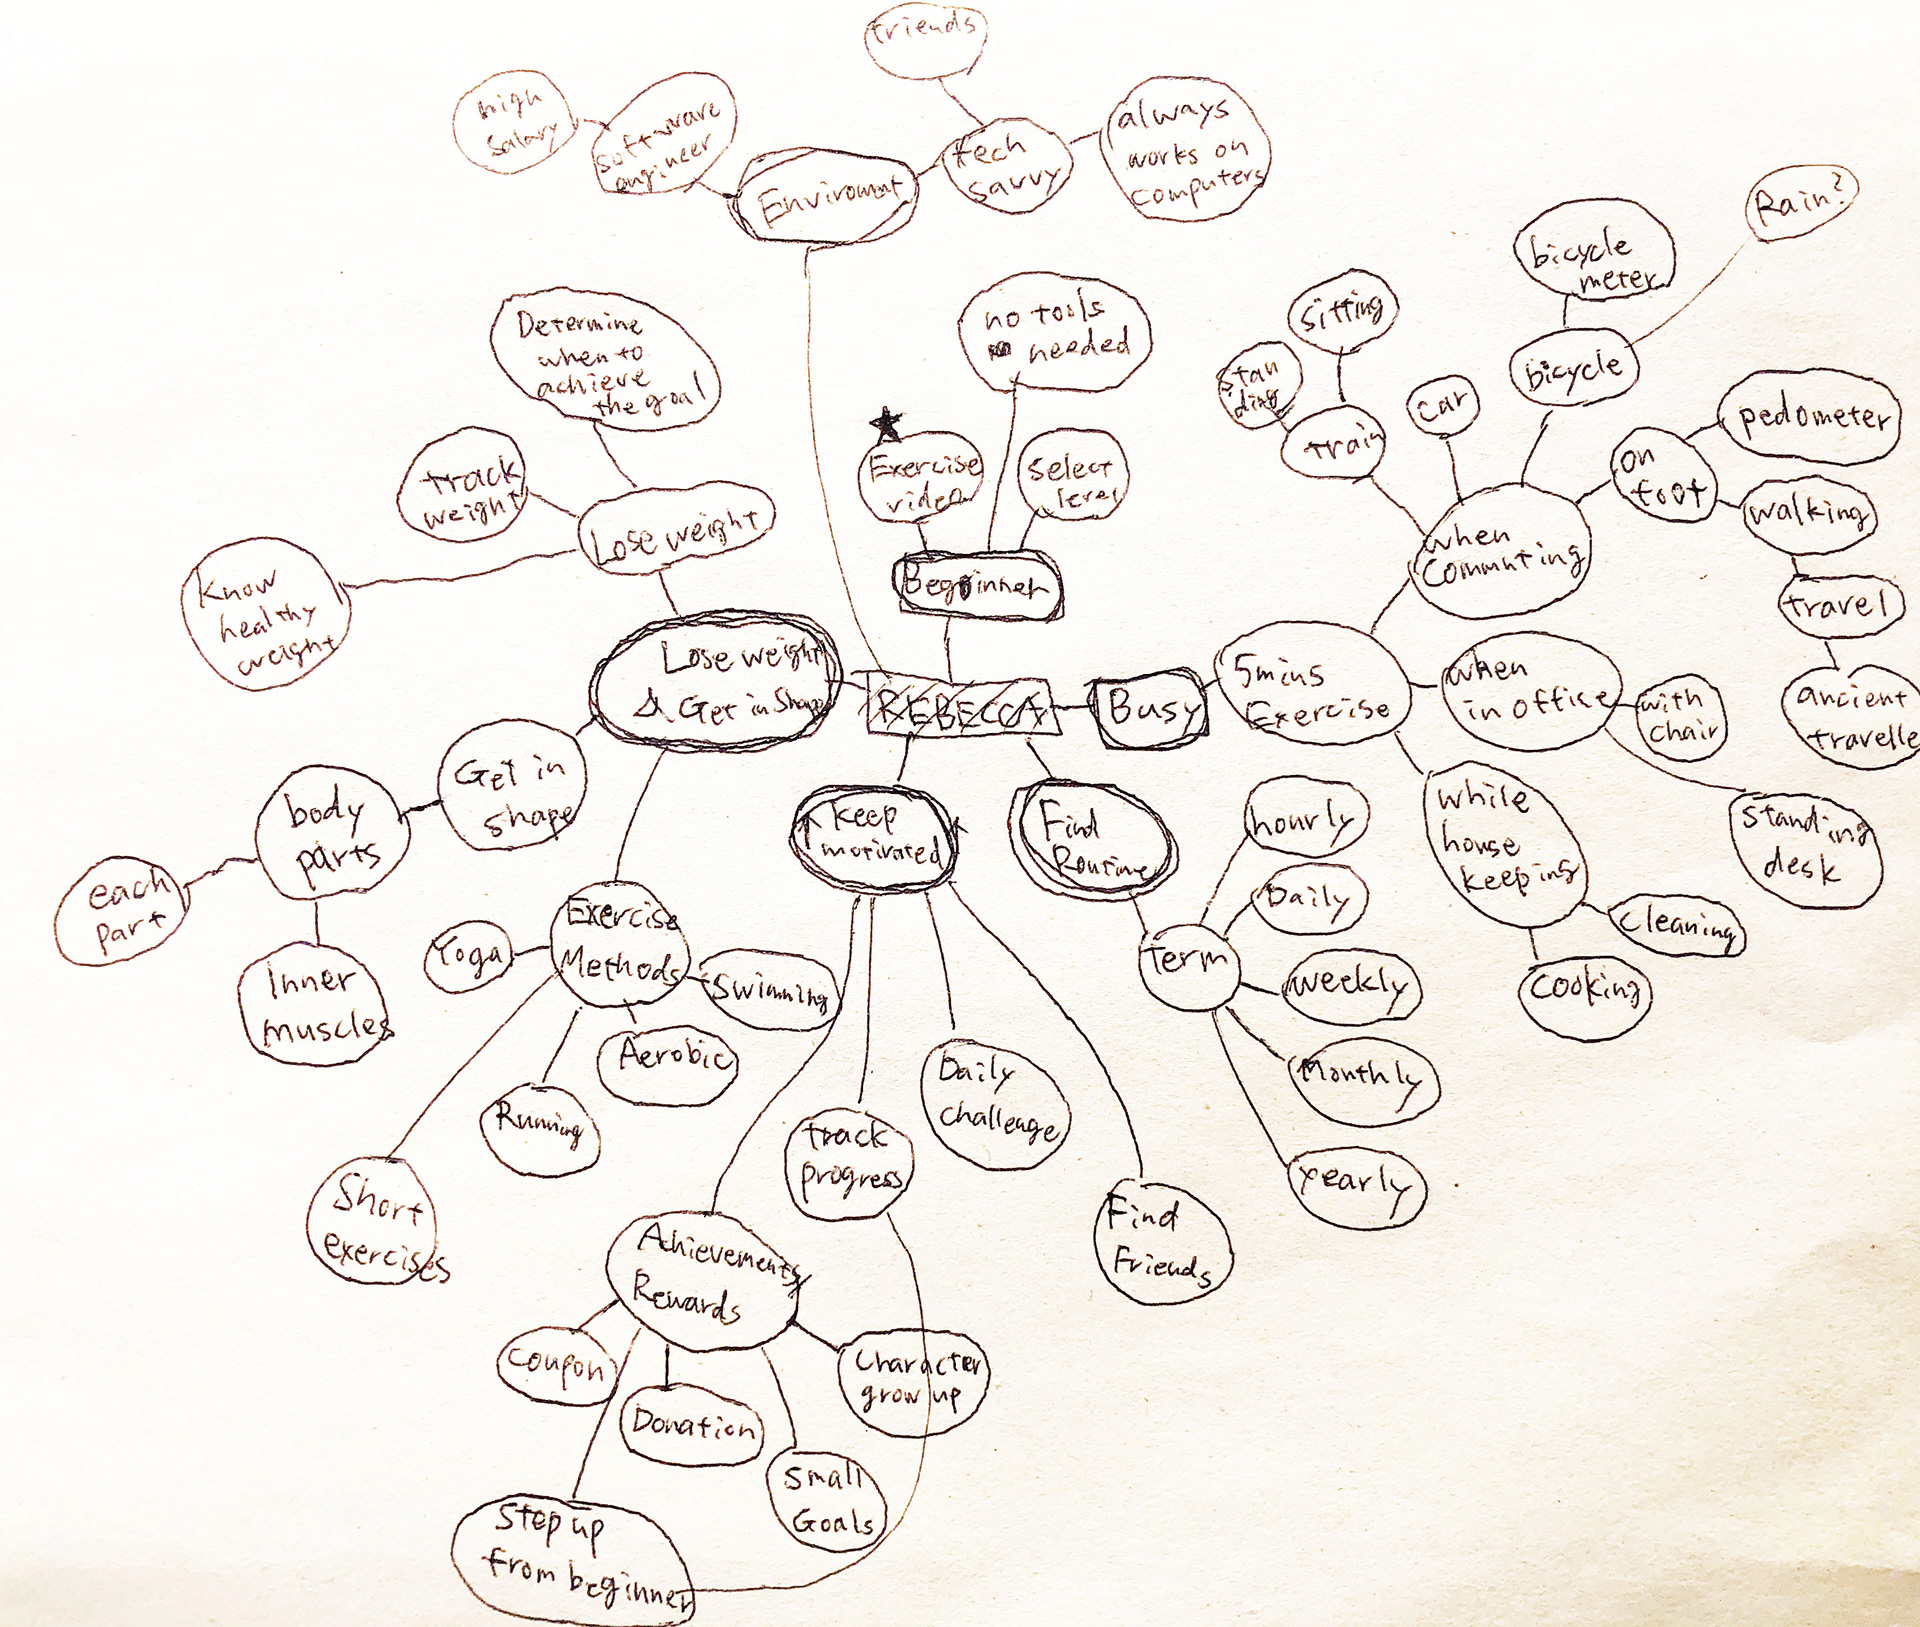 friends
high
salary
software
engineer
Enviromnt
tech
savvy
always
works on
computers
Rain?
bicycle
meter
bicycle
sitting
stan
ding
train
car
on
foot
pedometer
walking
travel
ancient
travelle
when
commuting
Determine
when to
achieve
the goal
track
weight
Lose weight
Know
healthy
weight
no tools
needed
Exercise
video
select
level
Begginner
Lose weight
& Get in Shape
REBECCA
Busy
5mins
Exercise
when
in office
with
chair
standing
desk
while
house
keeping
cleaning
cooking
Get in
shape
body
parts
each
part
Inner
muscles
Exercise
Methods
Yoga
Swimming
Aerobic
Running
Short
exercises
keep
motivated
Find
Routine
Term
hourly
Daily
weekly
Monthly
yearly
Daily
challenge
track
progress
Find
Friends
Achievements/
Rewards
coupon
Donation
small
Goals
Character
grow up
Step up
from beginner